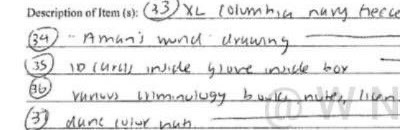 Description of Item (s): (33) XL Columbia navy fleece
(34) "A man's mind" drawing
(35) ID cards inside glove inside box
(36) various criminology books, notes,
(37) hat